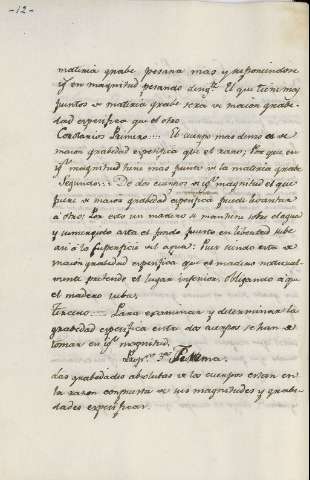 -12-
materia grabe pesara mas y suponiendose
ig.s en magnitud pesando desig.s El que tiene mas
puntos de materia grabe sera de maior grabe-
dad especifica que el otro.
Corolarios Primero.... El cuerpo mas denso es de
maior grabedad especifica que el raro; Porque en
ig.l magnitud tiene mas puntos de la materia grabe
Segundo... De dos cuerpos de ig.l magnitud el que
fuere de maior grabedad especifica puede levantar
á otro; Por esto un madero se mantiene sobre el agua
y sumergido asta el fondo puesto en libertad sube
asi á la superficie del agua: Pues siendo esta de
maior grabedad especifica que el madero natural-
mente pretende el lugar inferior, obligando á que
el madero suba.
Tercero.... Para examinar y determinar la
grabedad especifica entre dos cuerpos se han de
tomar en ig.l magnitud.
3.º Teorema.
Las grabedades absolutas de los cuerpos estan en
la razon compuesta de sus magnitudes y grabe-
dades especificas.